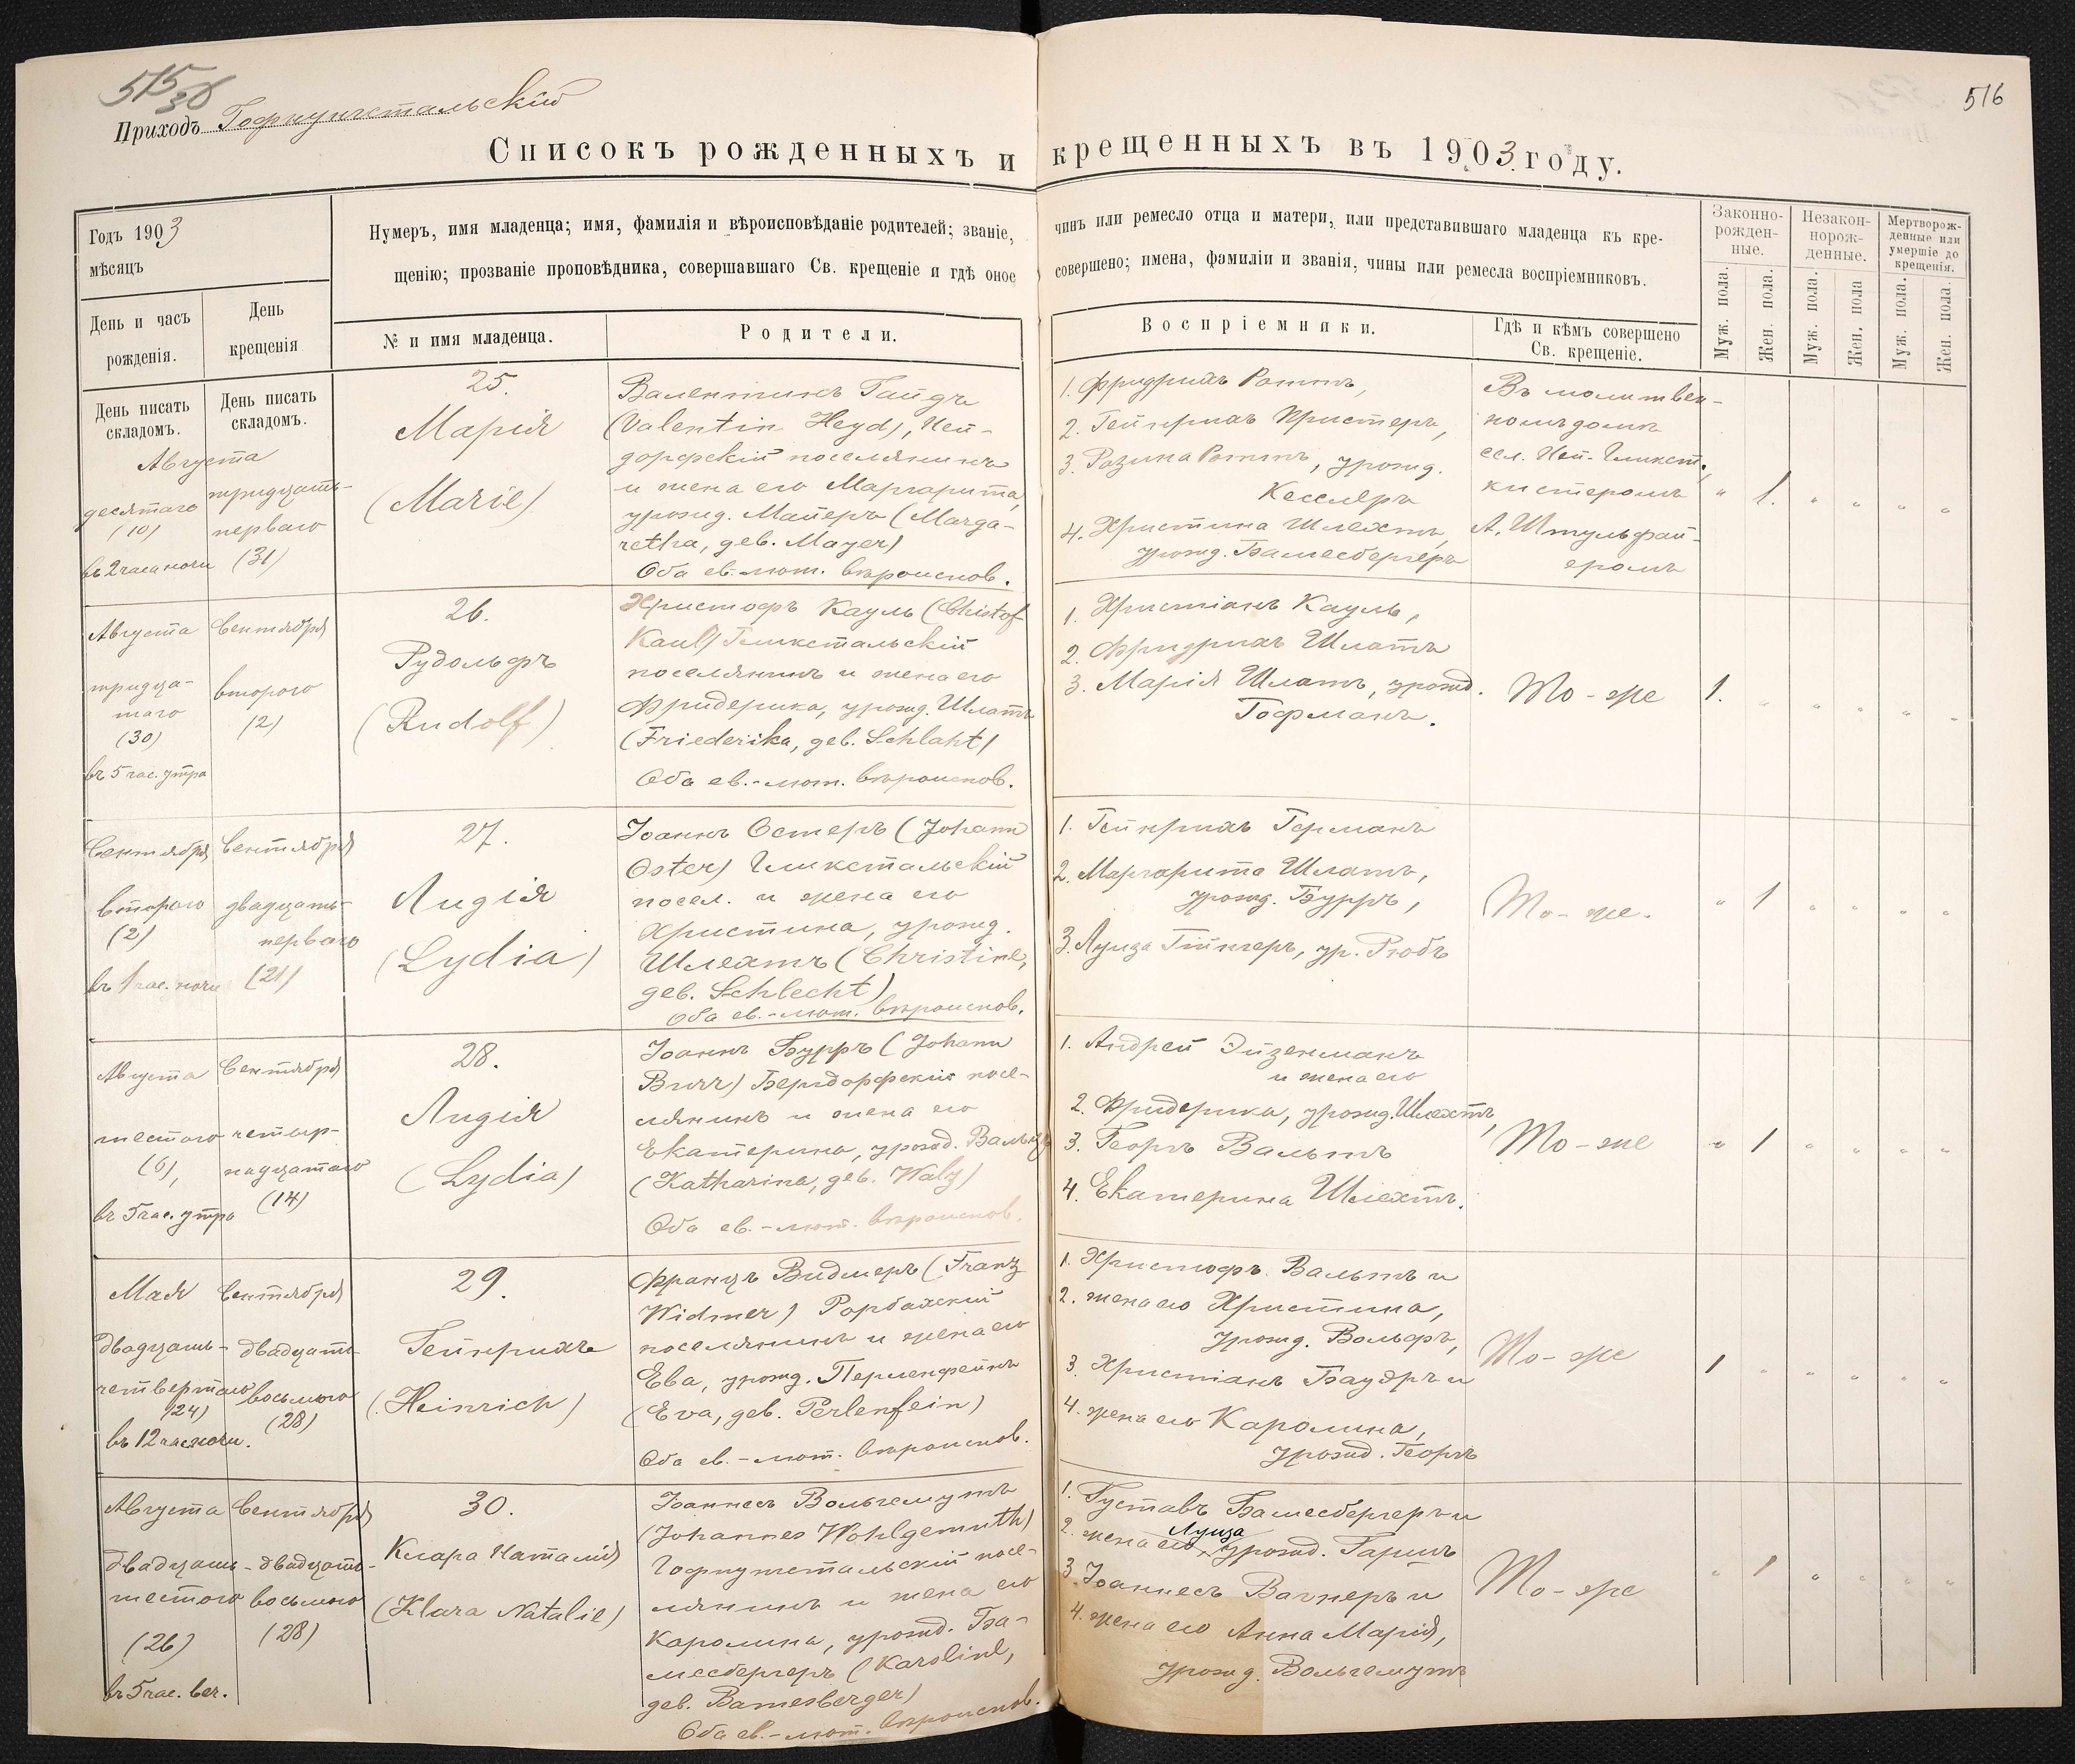 515
38
516
Приходъ Гофнунгстальскій
Списокъ рожденныхъ и крещенныхъ въ 1903 году.
Годъ 1903
мѣсяцъ
Нумеръ, имя младенца; имя, фамилія и вѣроисповѣданіе родителей; званіе,
чинъ или ремесло отца и матери, или представившаго младенца къ кре-
щенію; прозваніе проповѣдника, совершавшаго Св. крещеніе и гдѣ оное
совершено; имена, фамиліи и званія, чины или ремесла воспріемниковъ.
Законно-
рожден-
ные.
Незакон-
норож-
денные.
Мертворож-
денные или
умершіе до
крещенія.
Муж. пола.
Жен. пола.
Муж. пола.
Жен. пола
Муж. пола.
Жен. пола.
День и часъ
рожденія.
День
крещенія
№ и имя младенца.
Родители.
Воспріемники.
Гдѣ и кѣмъ совершено
Св. крещеніе.
День писать
складомъ.
День писать
складомъ.
Августа
десятаго
(10)
въ 2 часа ночи
тридцать-
перваго
(31)
25.
Марія
(Marie)
Валентинъ Гайдъ
(Valentin Heyd), Ней-
дорфскій поселянинъ
и жена его Маргарита,
урожд. Майеръ (Marga-
retha, geb. Mayer)
Оба ев.-лют. вѣроиспов.
1. Фридрихъ Роттъ,
2. Гейнрихъ Пристеръ,
3. Розина Роттъ, урожд.
Кесслеръ
4. Христина Шлехтъ,
урожд. Бамесбергеръ
Въ молитвен-
номъ домѣ
сел. Ней-Глюкст.,
кистеромъ
А. Штульфай-
еромъ
" 1. " " " "
Августа
тридца-
таго
(30)
въ 5 час. утра
Сентября
второго
(2)
26.
Рудольфъ
(Rudolf)
Христофъ Кауль (Christof
Kaul) Глюкстальскій
поселянинъ и жена его
Фридерика, урожд. Шлатъ
(Friederika, geb. Schlaht)
Оба ев.-лют. вѣроиспов.
1. Христіанъ Кауль,
2. Фридрихъ Шлатъ
3. Марія Шлатъ, урожд.
Гофманъ.
То-же
1. " " " " "
Сентября
второго
(2)
въ 1 час. ночи
Сентября
двадцать-
перваго
(21)
27.
Лидія
(Lydia)
Іоаннъ Остеръ (Johann
Oster) Глюкстальскій
посел. и жена его
Христина, урожд.
Шлехтъ (Christine,
geb. Schlecht)
Оба ев.-лют. вѣроиспов.
1. Гейнрихъ Германъ
2. Маргарита Шлатъ,
урожд. Бурръ,
3. Луиза Гейнгеръ, ур. Рюбъ
То-же.
" 1 " " " "
Августа
шестого
(6),
въ 5 час. утра
Сентября
четыр-
надцатаго
(14)
28.
Лидія
(Lydia)
Іоаннъ Бурръ (Johann
Burr) Бергдорфскій посе-
лянинъ и жена его
Екатерина, урожд. Вальцъ
(Katharina, geb. Walz)
Оба ев.-лют. вѣроиспов.
1. Андрей Эйзенманъ
и жена его
2. Фридерика, урожд. Шлехтъ,
3. Георгъ Вальтъ
4. Екатерина Шлехтъ.
То-же
" 1 " " " "
Мая
двадцать-
четвертаго
(24)
въ 12 час. ночи.
Сентября
двадцать-
восьмого
(28)
29.
Гейнрихъ
(Heinrich)
Францъ Видмеръ (Franz
Widmer) Рорбахскій
поселянинъ и жена его
Ева, урожд. Перленфейнъ
(Eva, geb. Perlenfein)
Оба ев.-лют. вѣроиспов.
1. Христофъ Вальтъ и
2. жена его Христина,
урожд. Вольфъ,
3. Христіанъ Баудръ и
4. жена его Каролина,
урожд. Георгъ
То-же
1 " " " " "
Августа
двадцать-
шестого
(26)
въ 5 час. веч.
Сентября
двадцать-
восьмого
(28)
30.
Клара Наталія
(Klara Natalie)
Іоаннесъ Вольгемутъ
(Johannes Wohlgemuth)
Гофнунгстальскій посе-
лянинъ и жена его
Каролина, урожд. Ба-
месбергеръ (Karoline,
geb. Bamesberger)
Оба ев.-лют. вѣроиспов.
1. Густавъ Бамесбергеръ и
Луиза
2. жена его, урожд. Гаришъ
3. Іоаннесъ Вагнеръ и
4. жена его Анна Марія,
урожд. Вольгемутъ
То-же
" 1 " " " "